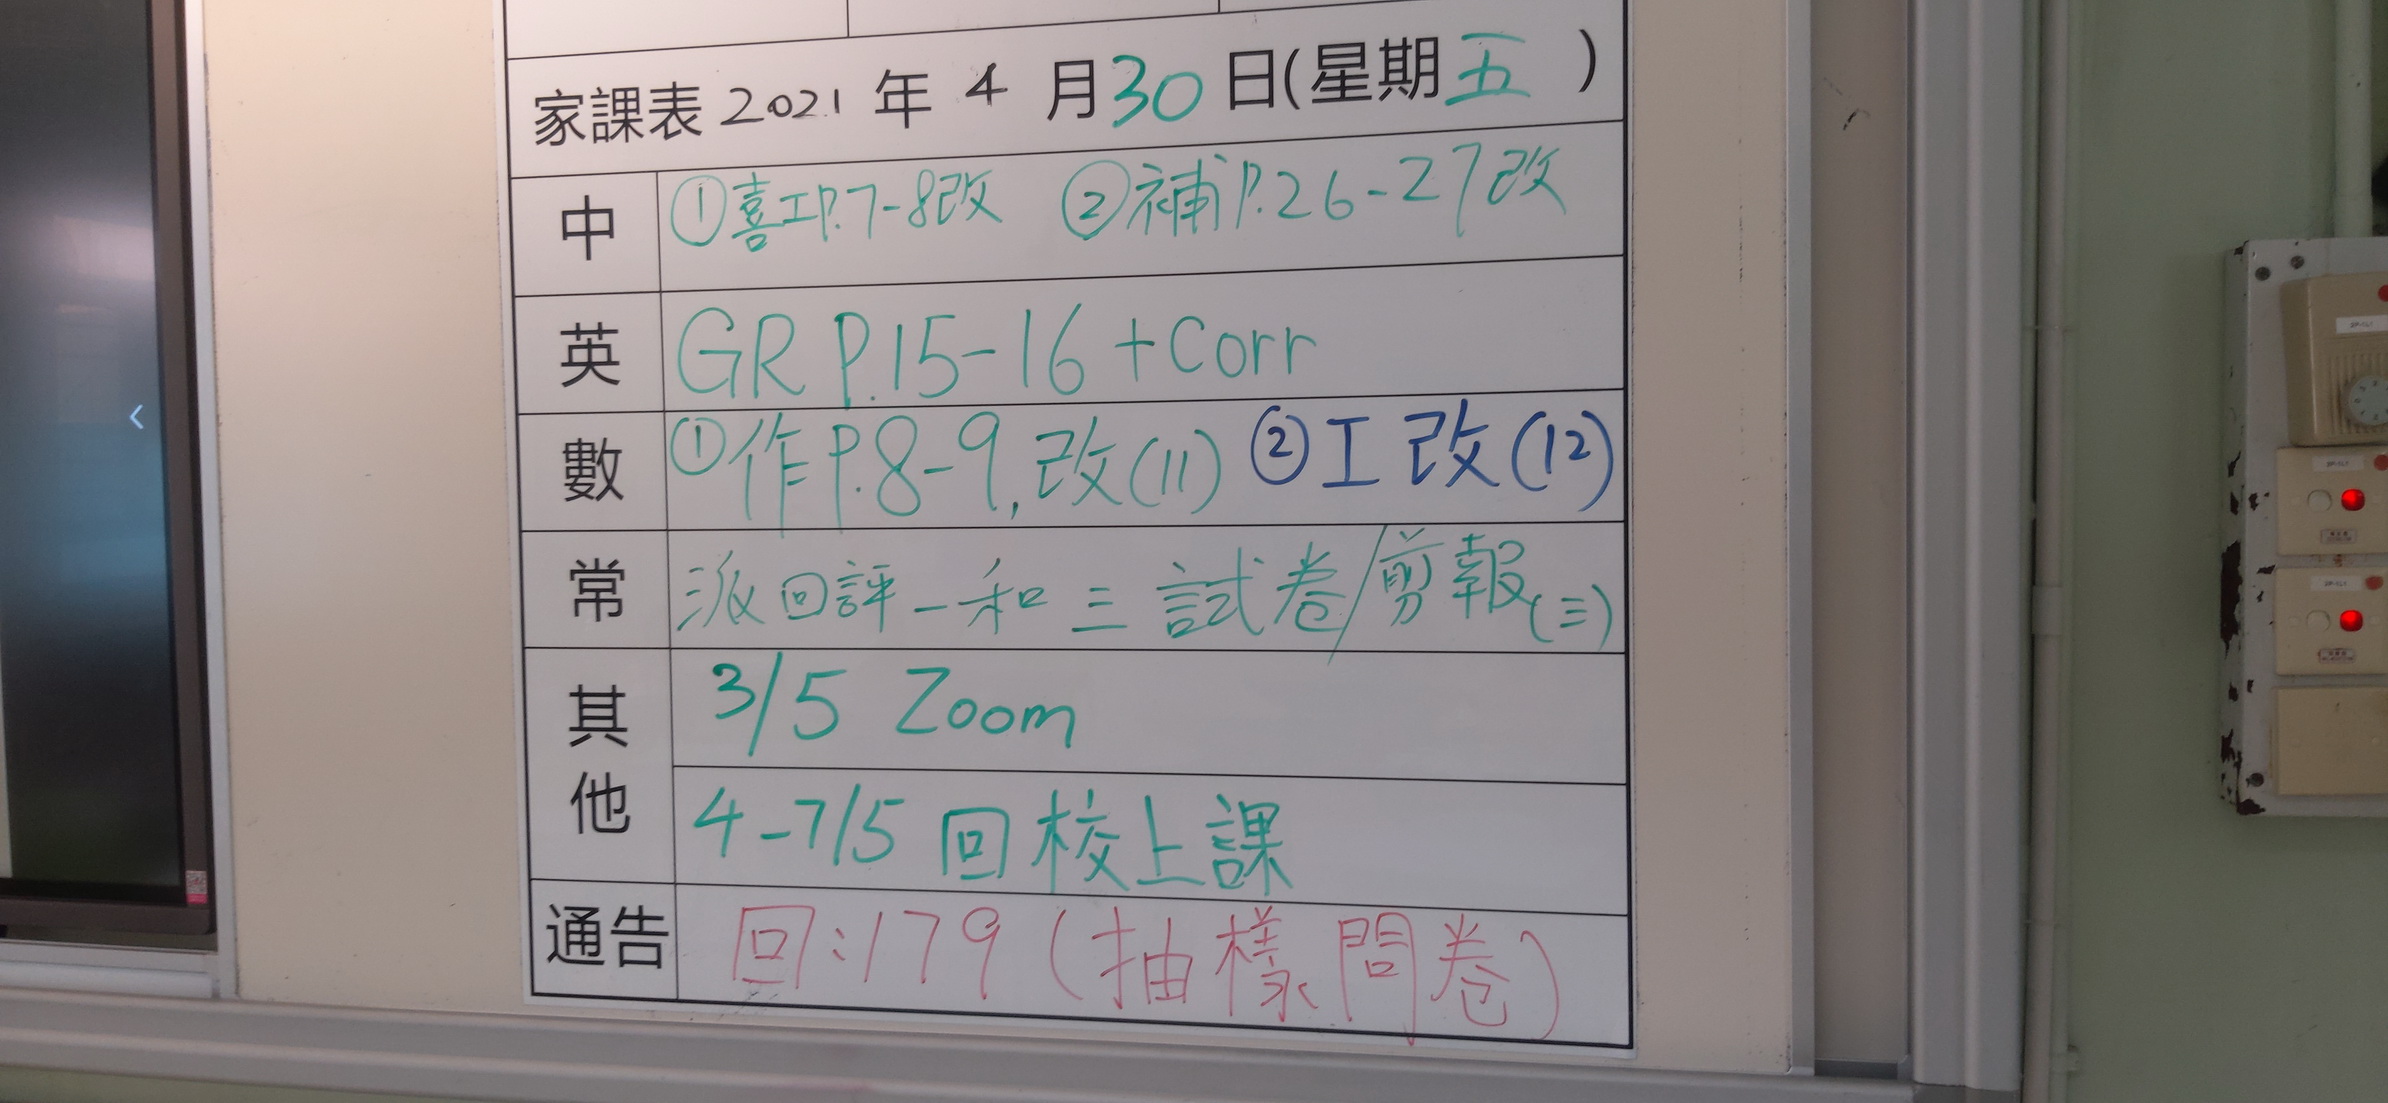 家課表 2021 年 4 月 30 日(星期五)
中 ①喜工P.7-8改 ②補P.26-27改
英 GR P.15-16 + Corr
數 ①作P.8-9,改(11) ②工改(12)
常 派回評一和三試卷/剪報(三)
其他 3/5 Zoom
4-7/5 回校上課
通告 回:179(抽樣問卷)